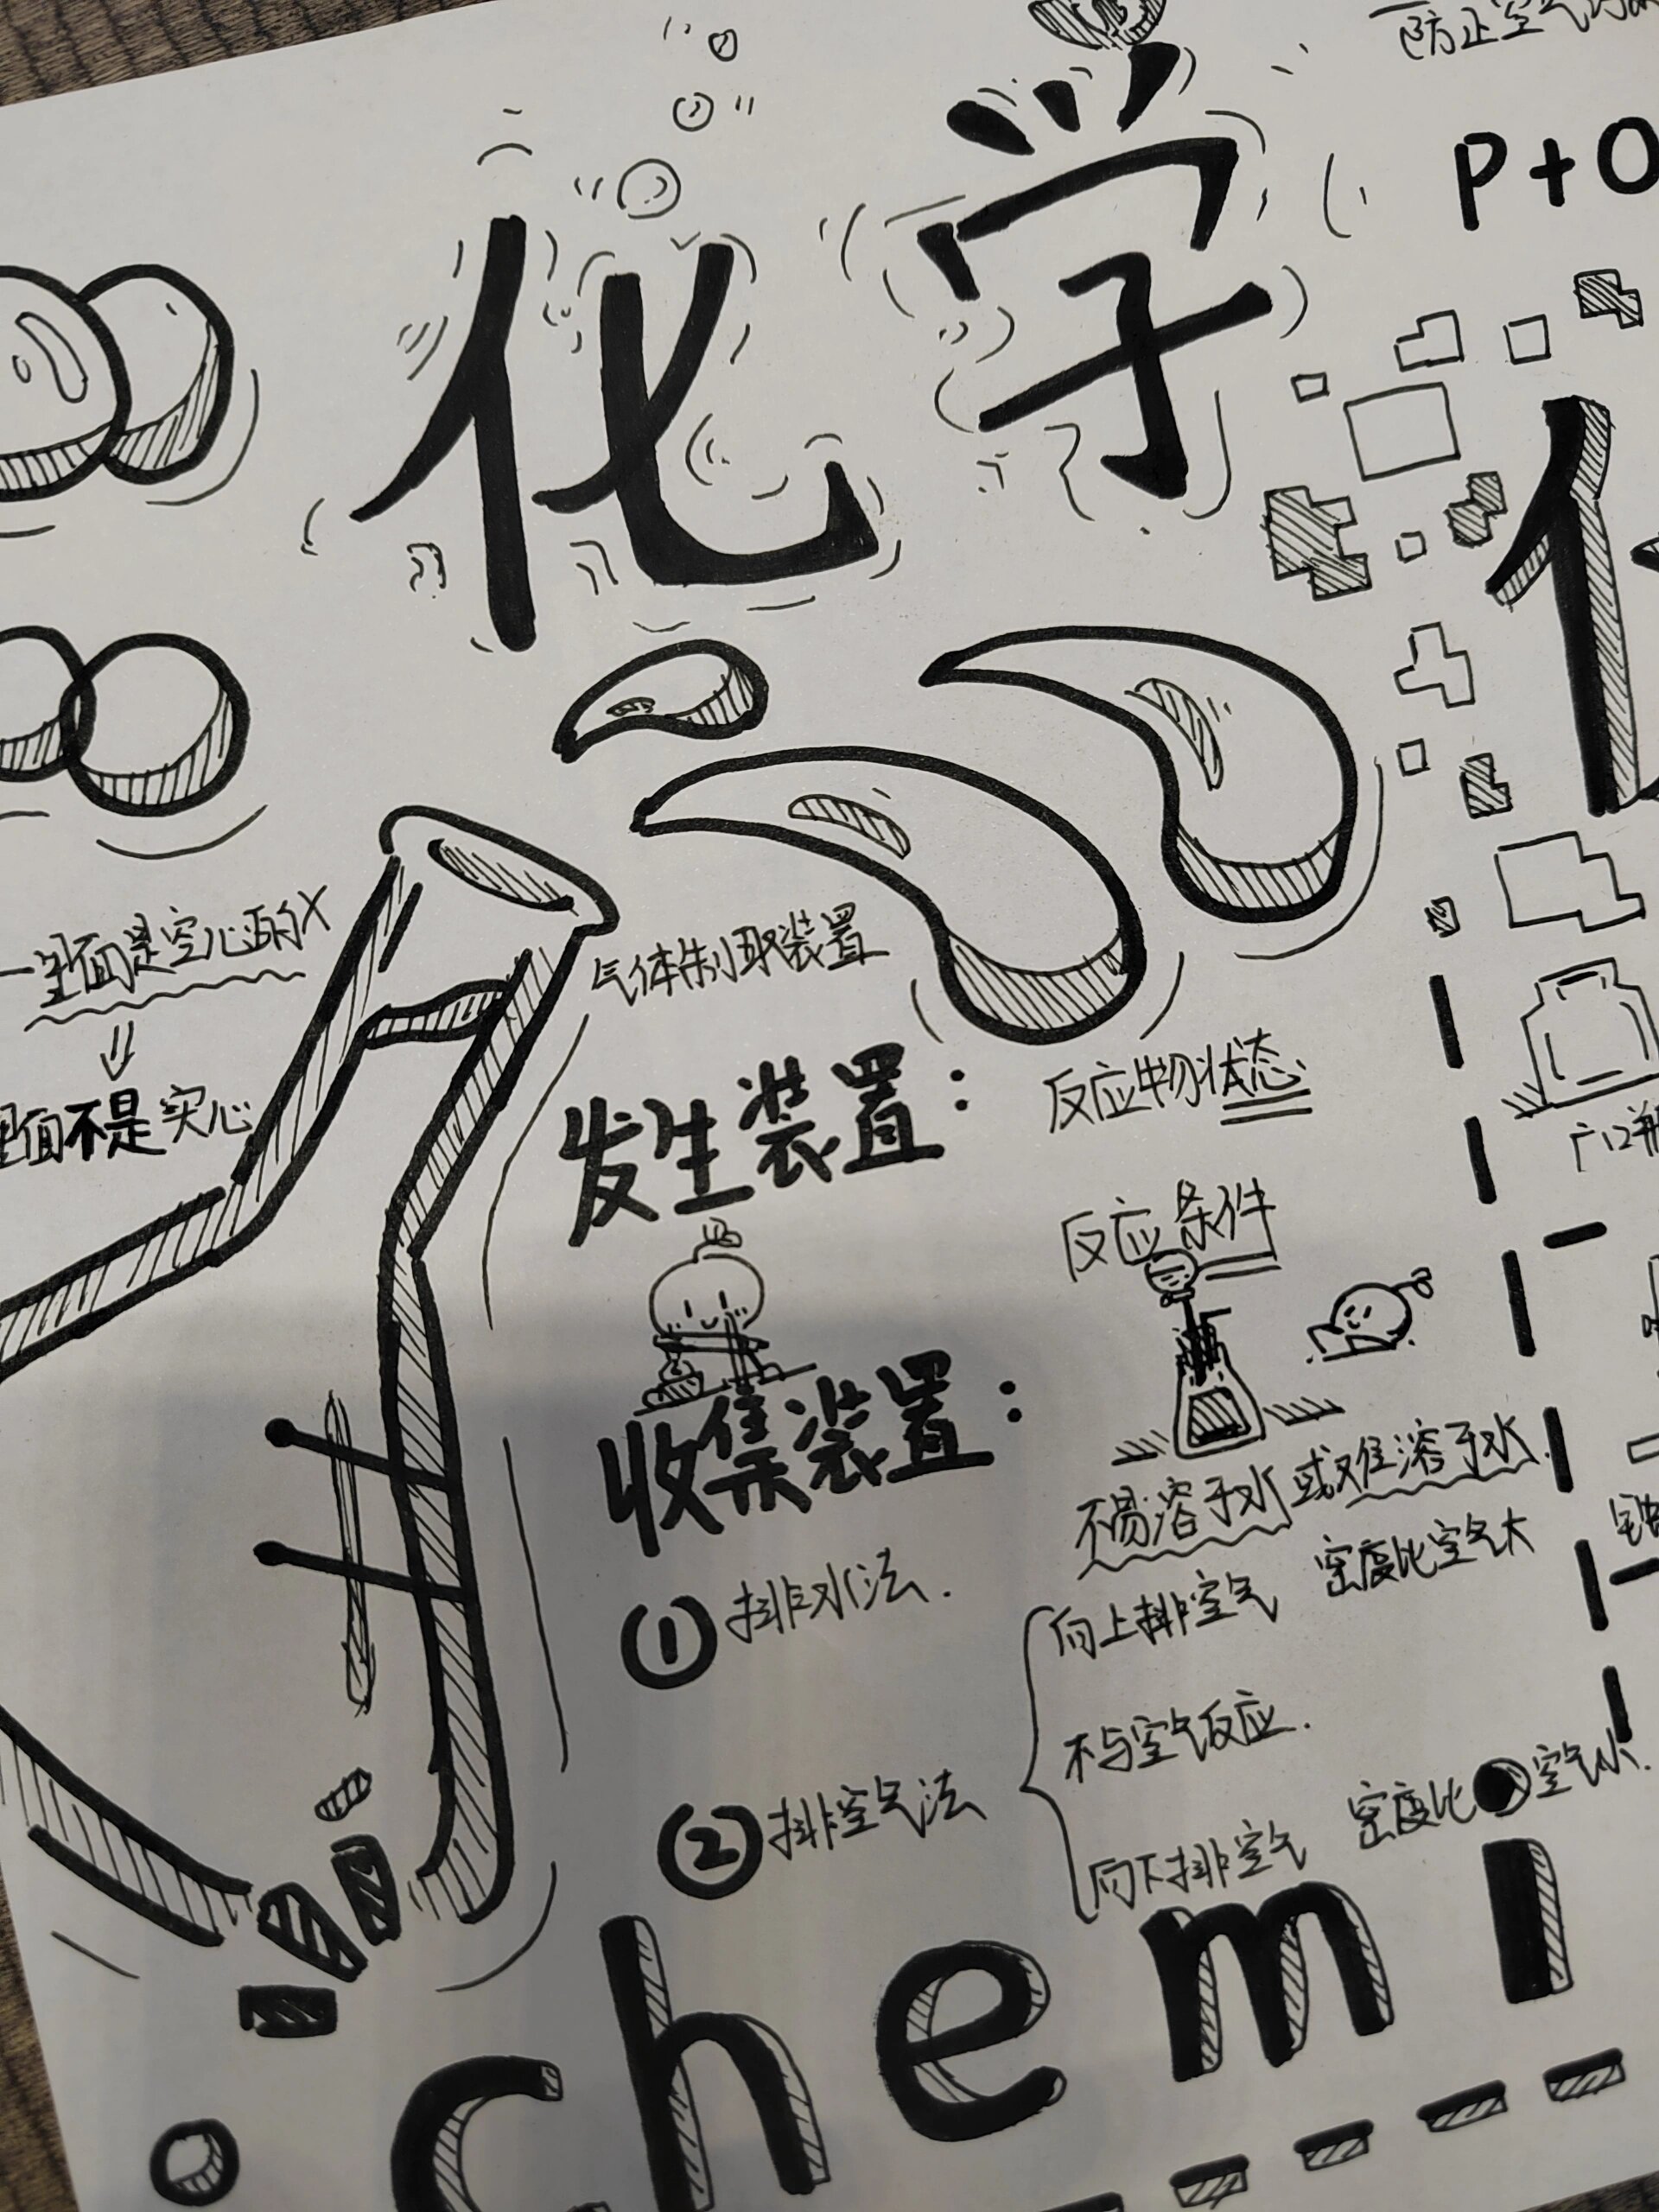 防止空气
化学
P+O
一里面是空心的X
里面不是实心
气体制取装置
发生装置：
反应物状态
反应条件
广口瓶
收集装置：
不易溶于水或难溶于水.
① 排水法.
向上排空气 密度比空气大
不与空气反应.
② 排空气法
向下排空气 密度比空气小.
chemi